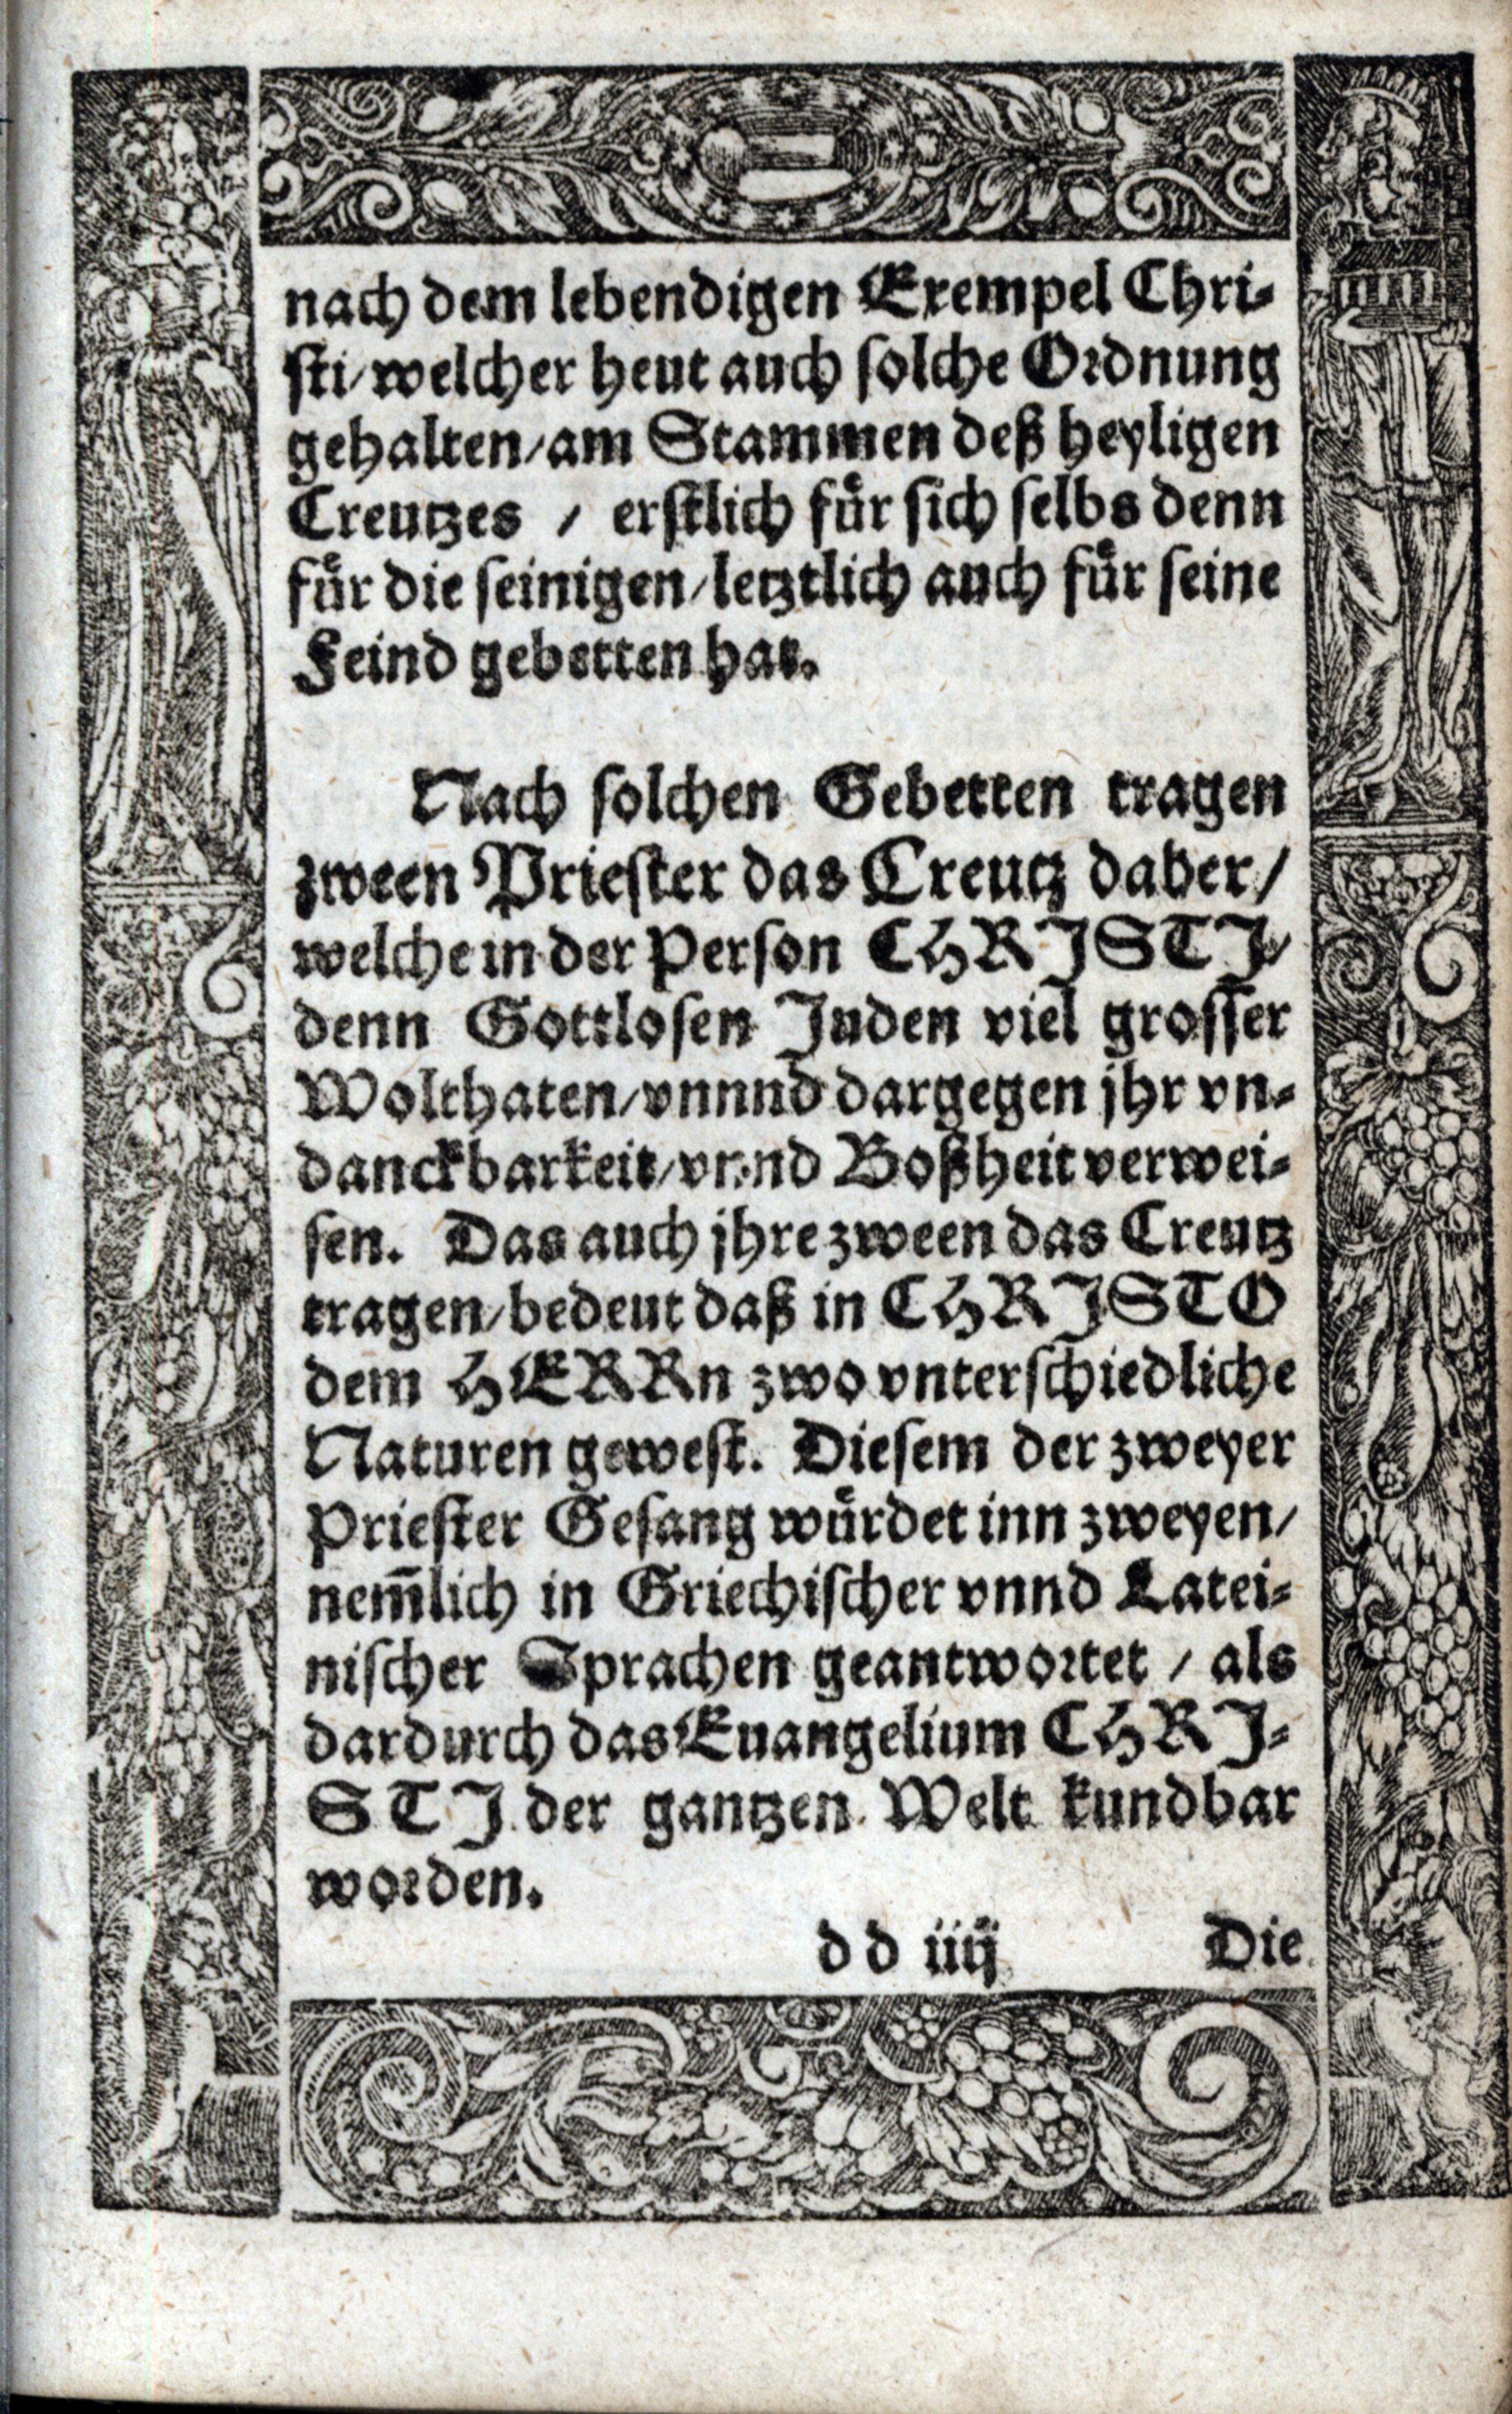 nach dem lebendigen Exempel Chri-
sti/ welcher heut auch solche Ordnung
gehalten/ am Stammen deß heyligen
Creutzes / erstlich fůr sich selbs denn
fůr die seinigen/ letztlich auch fůr seine
Feind gebetten hat.
Nach solchen Gebetten tragen
zween Priester das Creutz daher/
welche in der Person CHRJSTJ/
denn Gottlosen Juden viel grosser
Wolthaten/ vnnnd dargegen jhr vn-
danckbarkeit/ vnnd Boßheit verwei-
sen. Das auch jhre zween das Creutz
tragen/ bedeut daß in CHRJSTO
dem HERRn zwo vnterschiedliche
Naturen gewest. Diesem der zweyer
Priester Gesang wůrdet inn zweyen/
nem̄lich in Griechischer vnnd Latei-
nischer Sprachen geantwortet / als
dardurch das Euangelium CHRJ-
STJ der gantzen Welt kundbar
worden.
dd iiij Die